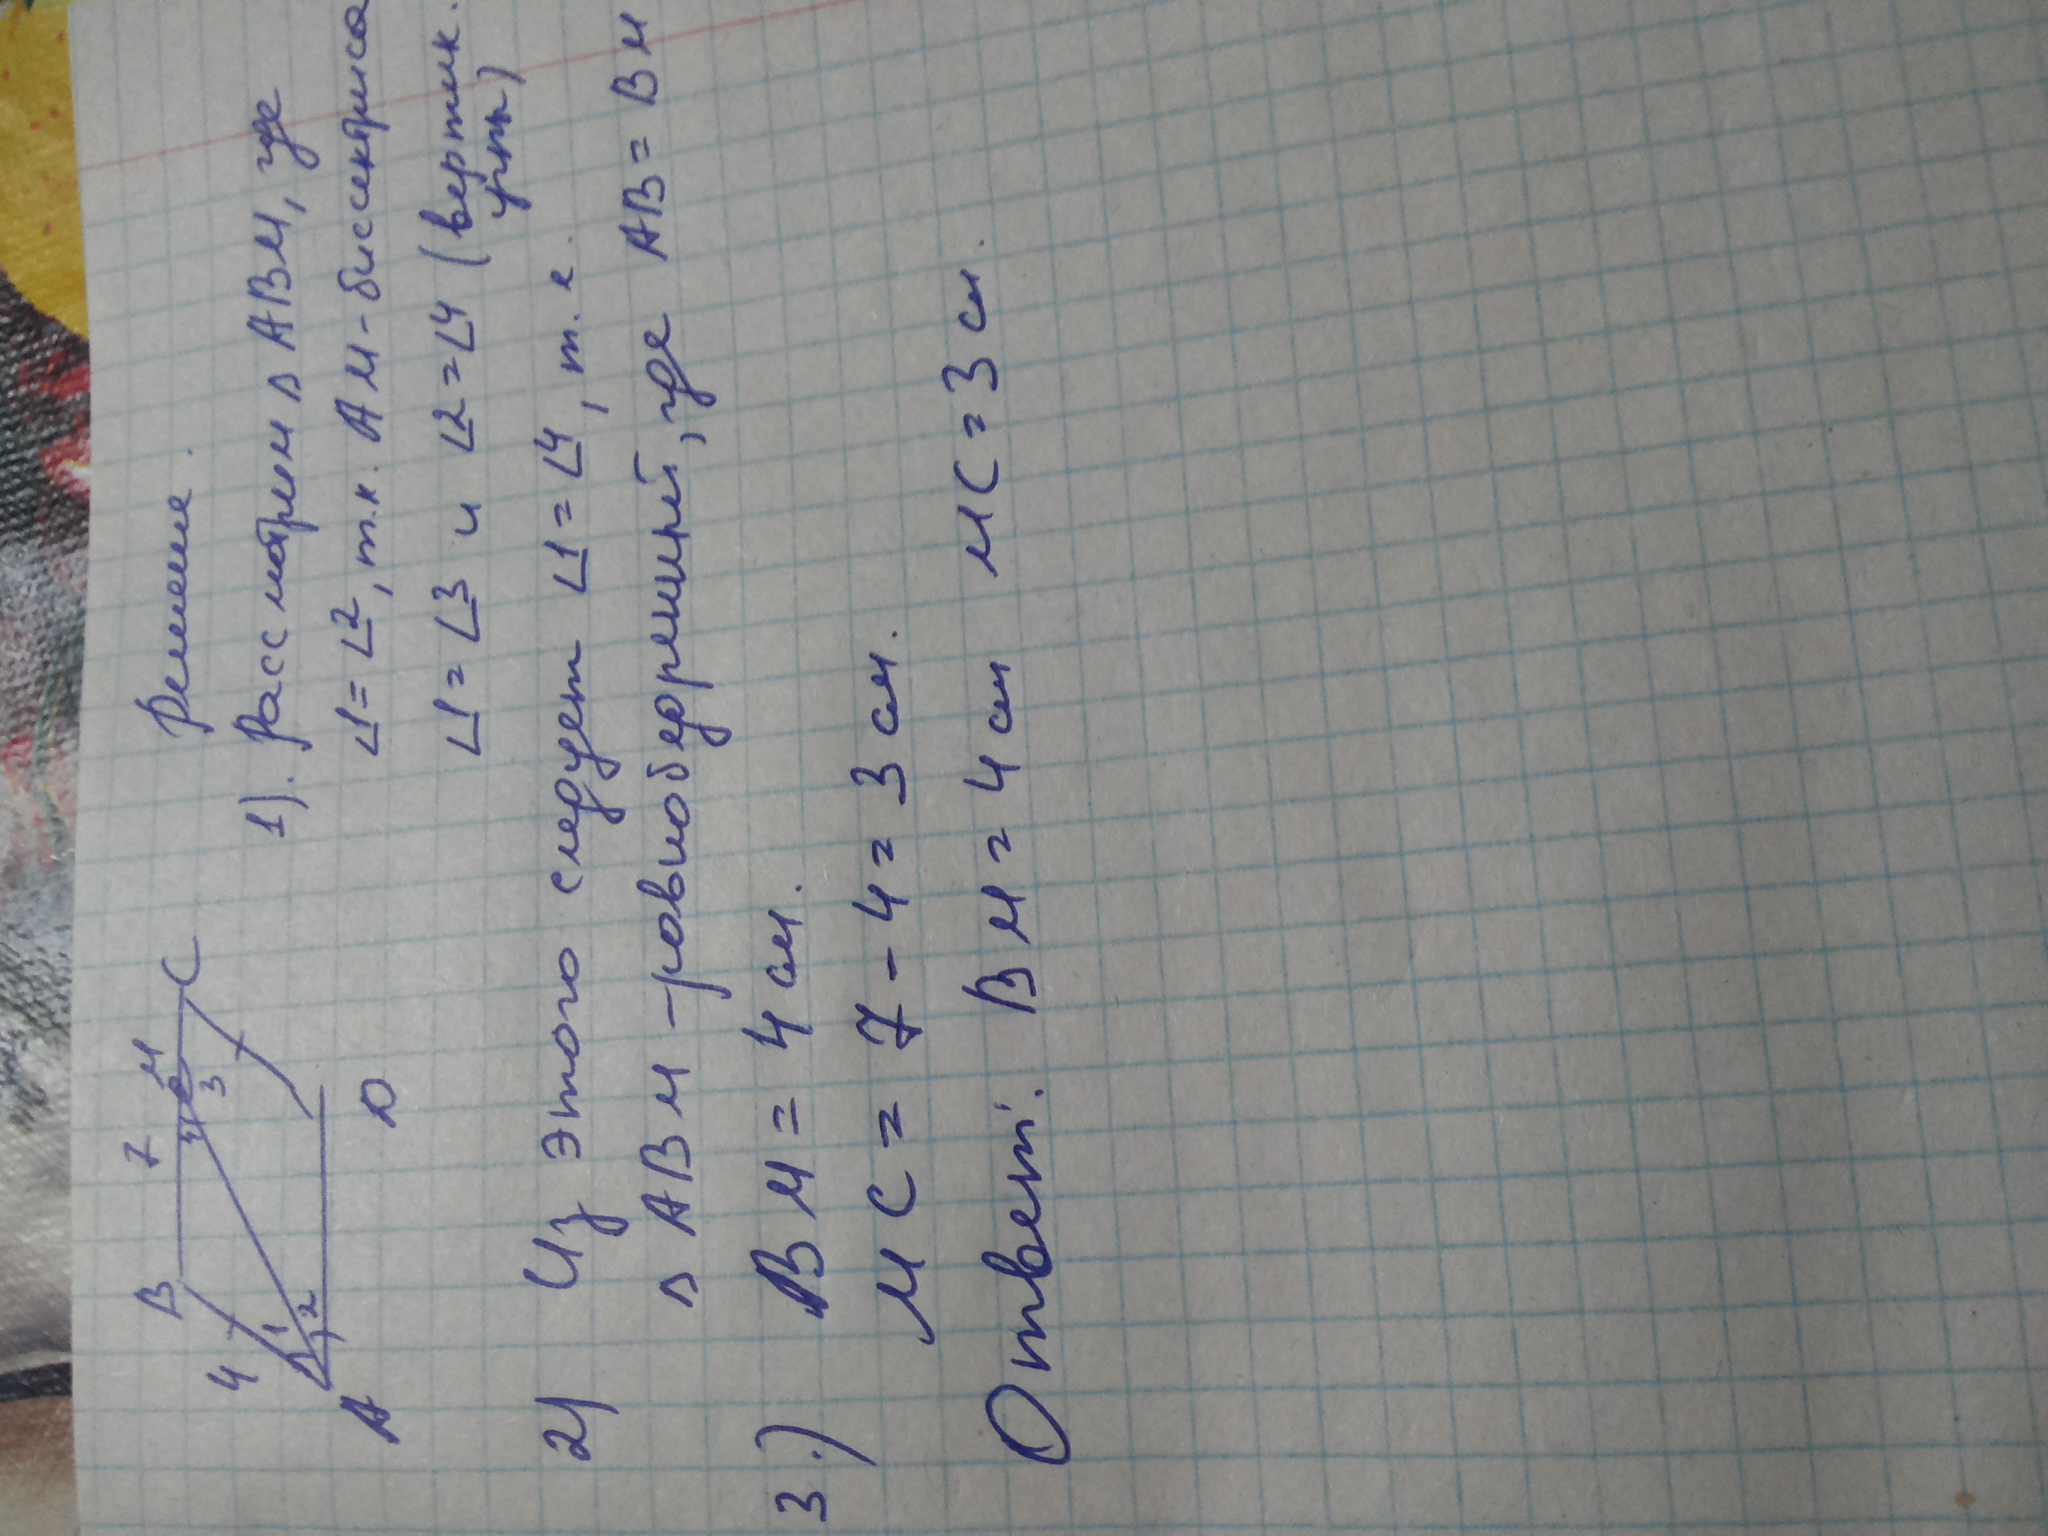 B 7 M C
4 1 2 3
A D
Решение.
1). Рассмотрим ▵ ABM, где
∠1=∠2, т.к. AM-биссектриса
∠1=∠3 и ∠2=∠4 (вертик.
углы)
2) Из этого следует ∠1=∠4, т.е.
▵ ABM -равнобедренный, где AB=BM
3.) BM=4 см.
MC=7-4=3 см.
Ответ: BM=4 см MC=3 см.